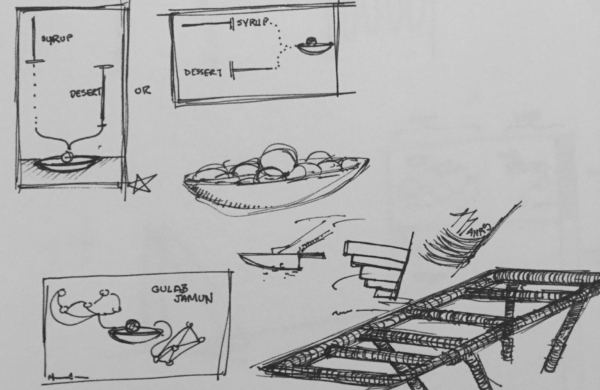 SYRUP
DESERT
OR
SYRUP
DESSERT
GULAB
JAMUN